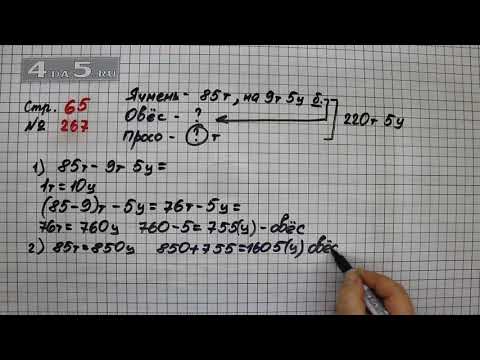 4 DA 5.RU
Стр. 65
№ 267
Ячмень - 85т, на 9т 5ц б.
Овёс - ?
Просо - ? т
220т 5ц
1) 85т - 9т 5ц =
1т = 10ц
(85-9)т - 5ц = 76т - 5ц =
76т = 760ц 760 - 5 = 755(ц) - овёс
2) 85т = 850ц 850 + 755 = 1605(ц) овёс